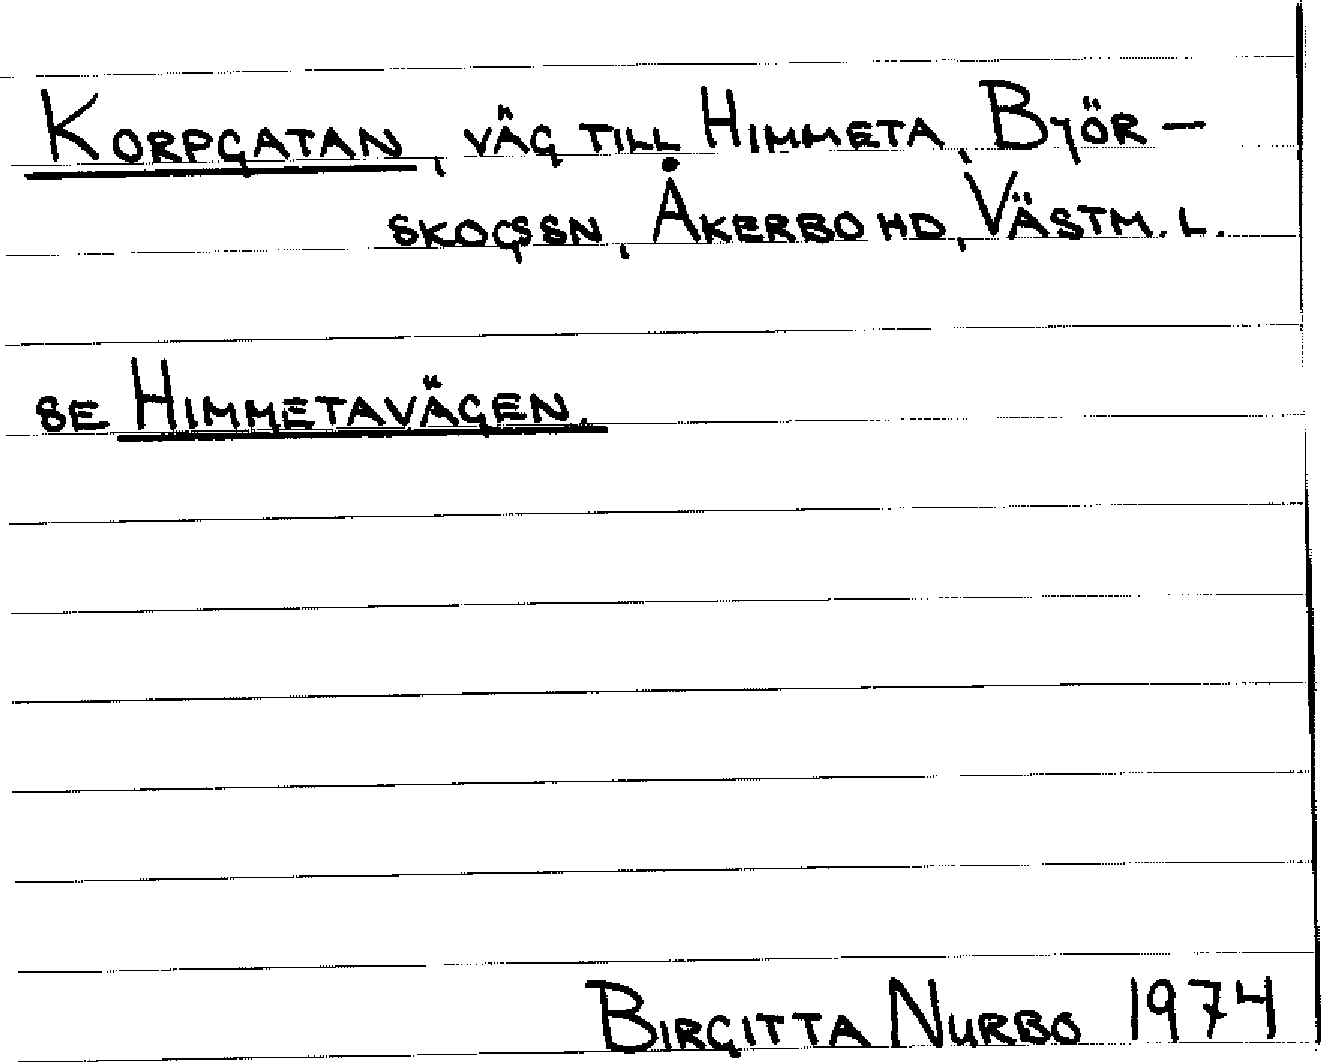 Korpgatan, väg till Himmeta, Byör-
skogssn, Åkerbo hd, Västm. l.
se Himmetavägen.
Birgitta Nurbo 1974